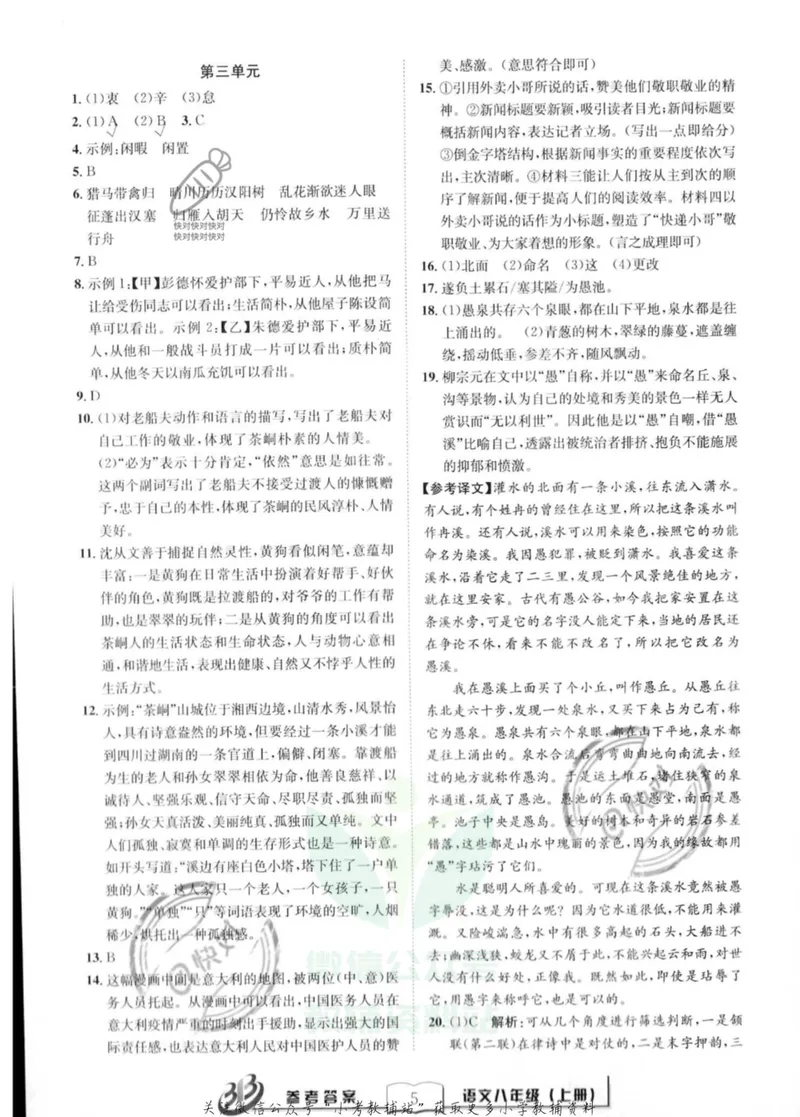 第三单元
1. (1)衷　(2)辛　(3)怠
2. (1)A　(2)B　3. C
4. 示例:闲暇　闲置
5. B
6. 猎马带禽归　晴川历历汉阳树　乱花渐欲迷人眼
征蓬出汉塞　归雁入胡天　仍怜故乡水　万里送
行舟
7. B
8. 示例 1:【甲】彭德怀爱护部下,平易近人,从他把马
让给受伤同志可以看出;生活简朴,从他屋子陈设简
单可以看出。示例 2:【乙】朱德爱护部下,平易近
人,从他和一般战斗员打成一片可以看出;质朴简
单,从他冬天以南瓜充饥可以看出。
9. D
10. (1)对老船夫动作和语言的描写,写出了老船夫对
自己工作的敬业,体现了茶峒朴素的人情美。
(2)“必为”表示十分肯定,“依然”意思是如往常。
这两个副词写出了老船夫不接受过渡人的慷慨赠
予,忠于自己的本分,体现了茶峒的民风淳朴、人情
美好。
11. 沈从文善于捕捉自然灵性,黄狗看似闲笔,意蕴却
丰富:一是黄狗在日常生活中扮演着好帮手、好伙
伴的角色,黄狗既是拉渡船的,对爷爷的工作有帮
助,也是翠翠的玩伴;二是从黄狗的角度可以看出
茶峒人的生活状态和生命状态,人与动物心意相
通,和谐地生活,表现出健康、自然又不悖乎人性的
生活方式。
12. 示例:“茶峒”山城位于湘西边境,山清水秀,风景怡
人,具有诗意盎然的环境,但要经过一条小溪才能
到四川过湖南的一条官道上,偏僻、闭塞。靠渡船
为生的老人和孙女翠翠相依为命,他善良慈祥、以
诚待人、坚强乐观、信守天命、尽职尽责、孤独而坚
强;孙女天真活泼、美丽纯真、孤独而又单纯。文中
人们孤独、寂寞和单调的生存形式也是一种诗意。
如开头写道:“溪边有座白色小塔,塔下住了一户单
独的人家。这人家只一个老人,一个女孩子,一只
黄狗。”“单独”“只”等词语表现了环境的空旷,人烟
稀少,烘托出一种孤独感。
13. B
14. 这幅漫画中间是意大利的地图,被两位(中、意)医
务人员托起。从漫画中可以看出,中国医务人员在
意大利疫情严重的时刻出手援助,显示出强大的国
际责任感,也表达意大利人民对中国医护人员的赞
美、感激。(意思符合即可)
15. ①引用外卖小哥所说的话,赞美他们敬职敬业的精
神。②新闻标题要新颖,吸引读者目光;新闻标题要
概括新闻内容,表达记者立场。(写出一点即给分)
③倒金字塔结构,根据新闻事实的重要程度依次写
出,主次清晰。④材料三能让人们按从主到次的顺
序了解新闻,便于提高人们的阅读效率。材料四以
外卖小哥说的话作为小标题,塑造了“快递小哥”敬
职敬业、为大家着想的形象。(言之成理即可)
16. (1)北面　(2)命名　(3)这　(4)更改
17. 遂负土累石/塞其隘/为愚池。
18. (1)愚泉共存六个泉眼,都在山下平地,泉水都是往
上涌出的。　(2)青葱的树木,翠绿的藤蔓,遮盖缠
绕,摇动低垂,参差不齐,随风飘动。
19. 柳宗元在文中以“愚”自称,并以“愚”来命名丘、泉、
沟等景物,认为自己的处境和秀美的景色一样无人
赏识而“无以利世”。因此他是以“愚”自嘲,借“愚
溪”比喻自己,透露出被统治者排挤、抱负不能施展
的抑郁和愤激。
【参考译文】灌水的北面有一条小溪,往东流入潇水。
有人说,有个姓冉的曾经住在这里,所以把这条溪水叫
作冉溪。还有人说,溪水可以用来染色,按照它的功能
命名为染溪。我因愚犯罪,被贬到潇水。我喜爱这条
溪水,沿着它走了二三里,发现一个风景绝佳的地方,
就在这里安家。古代有愚公谷,如今我把家安置在这
条溪水旁,可是它的名字没人能定下来,当地的居民还
在争论不休,看来不能不改名了,所以把它改名为
愚溪。
我在愚溪上面买了个小丘,叫作愚丘。从愚丘往
东北走六十步,发现一处泉水,又买下来占为己有,称
它为愚泉。愚泉共有六个泉眼,都在山下平地,泉水都
是往上涌出的。泉水合流后弯弯曲曲地向南流去,经
过的地方就称作愚沟。于是运土堆石,堵住狭窄的泉
水通道,筑成了愚池。愚池的东面是愚堂,南面是愚
亭。池子中央是愚岛。美好的树木和奇异的岩石参差
错落,这些都是山水中瑰丽的景色,因为我的缘故都用
“愚”字玷污了它们。
水是聪明人所喜爱的。可现在这条溪水竟然被愚
字辱没,这是为什么呢?因为它水道很低,不能用来灌
溉。又险峻湍急,水中有很多高起的石头,大船进不
去;幽深浅狭,蛟龙又不屑于此,不能兴起云和雨,对世
人没有什么好处,正像我。既然如此,即使是玷辱了
它,用愚字来称呼它,也是可以的。
20. (1)C　解析:可从几个角度进行筛选判断,一是颔
联(第二联)在律诗中是对仗的,二是末字押韵,三
快对快对快对
快对快对快对
快对
快对
微信公众号
BB 参考答案　5　语文八年级(上册)
关注微信公众号“小考教辅站”获取更多小学教辅资料